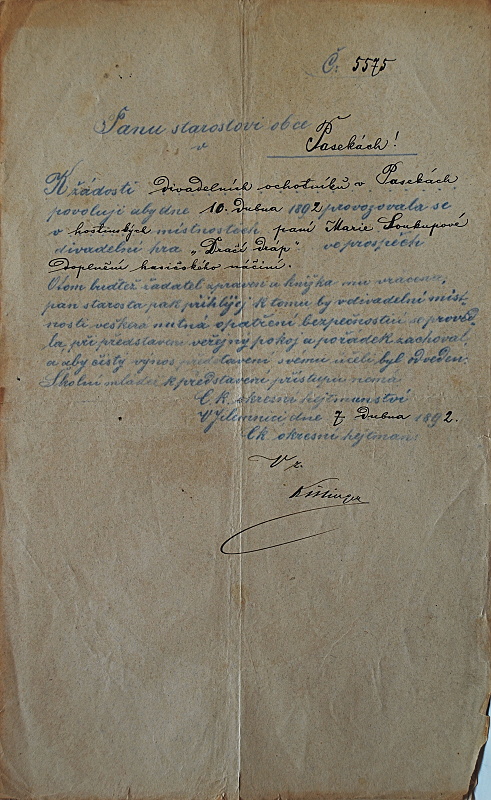 Č. 5575
Panu starostovi obce
v Pasekách!
K žádosti divadelních ochotníků v Pasekách
povoluji aby dne 10. dubna 1892 provozovala se
v hostinských místnostech paní Marie Soukupové
divadelní hra „Dračí dráp" ve prospěch
doplnění hasičského náčiní.
O tom budiž žadatel zpraven a knížka mu vrácena,
pan starosta pak přihlížej k tomu by v divadelní míst-
nosti veškera nutná opatření bezpečnostní se proved-
la, při představení veřejný pokoj a pořádek zachoval,
a aby čistý výnos představení svému účeli byl odveden.
Školní mládež k představení přístupu nemá
C. k. okresní hejtmanství
V Jilemnici dne 7. dubna 1892.
C. k. okresní hejtman:
V z.